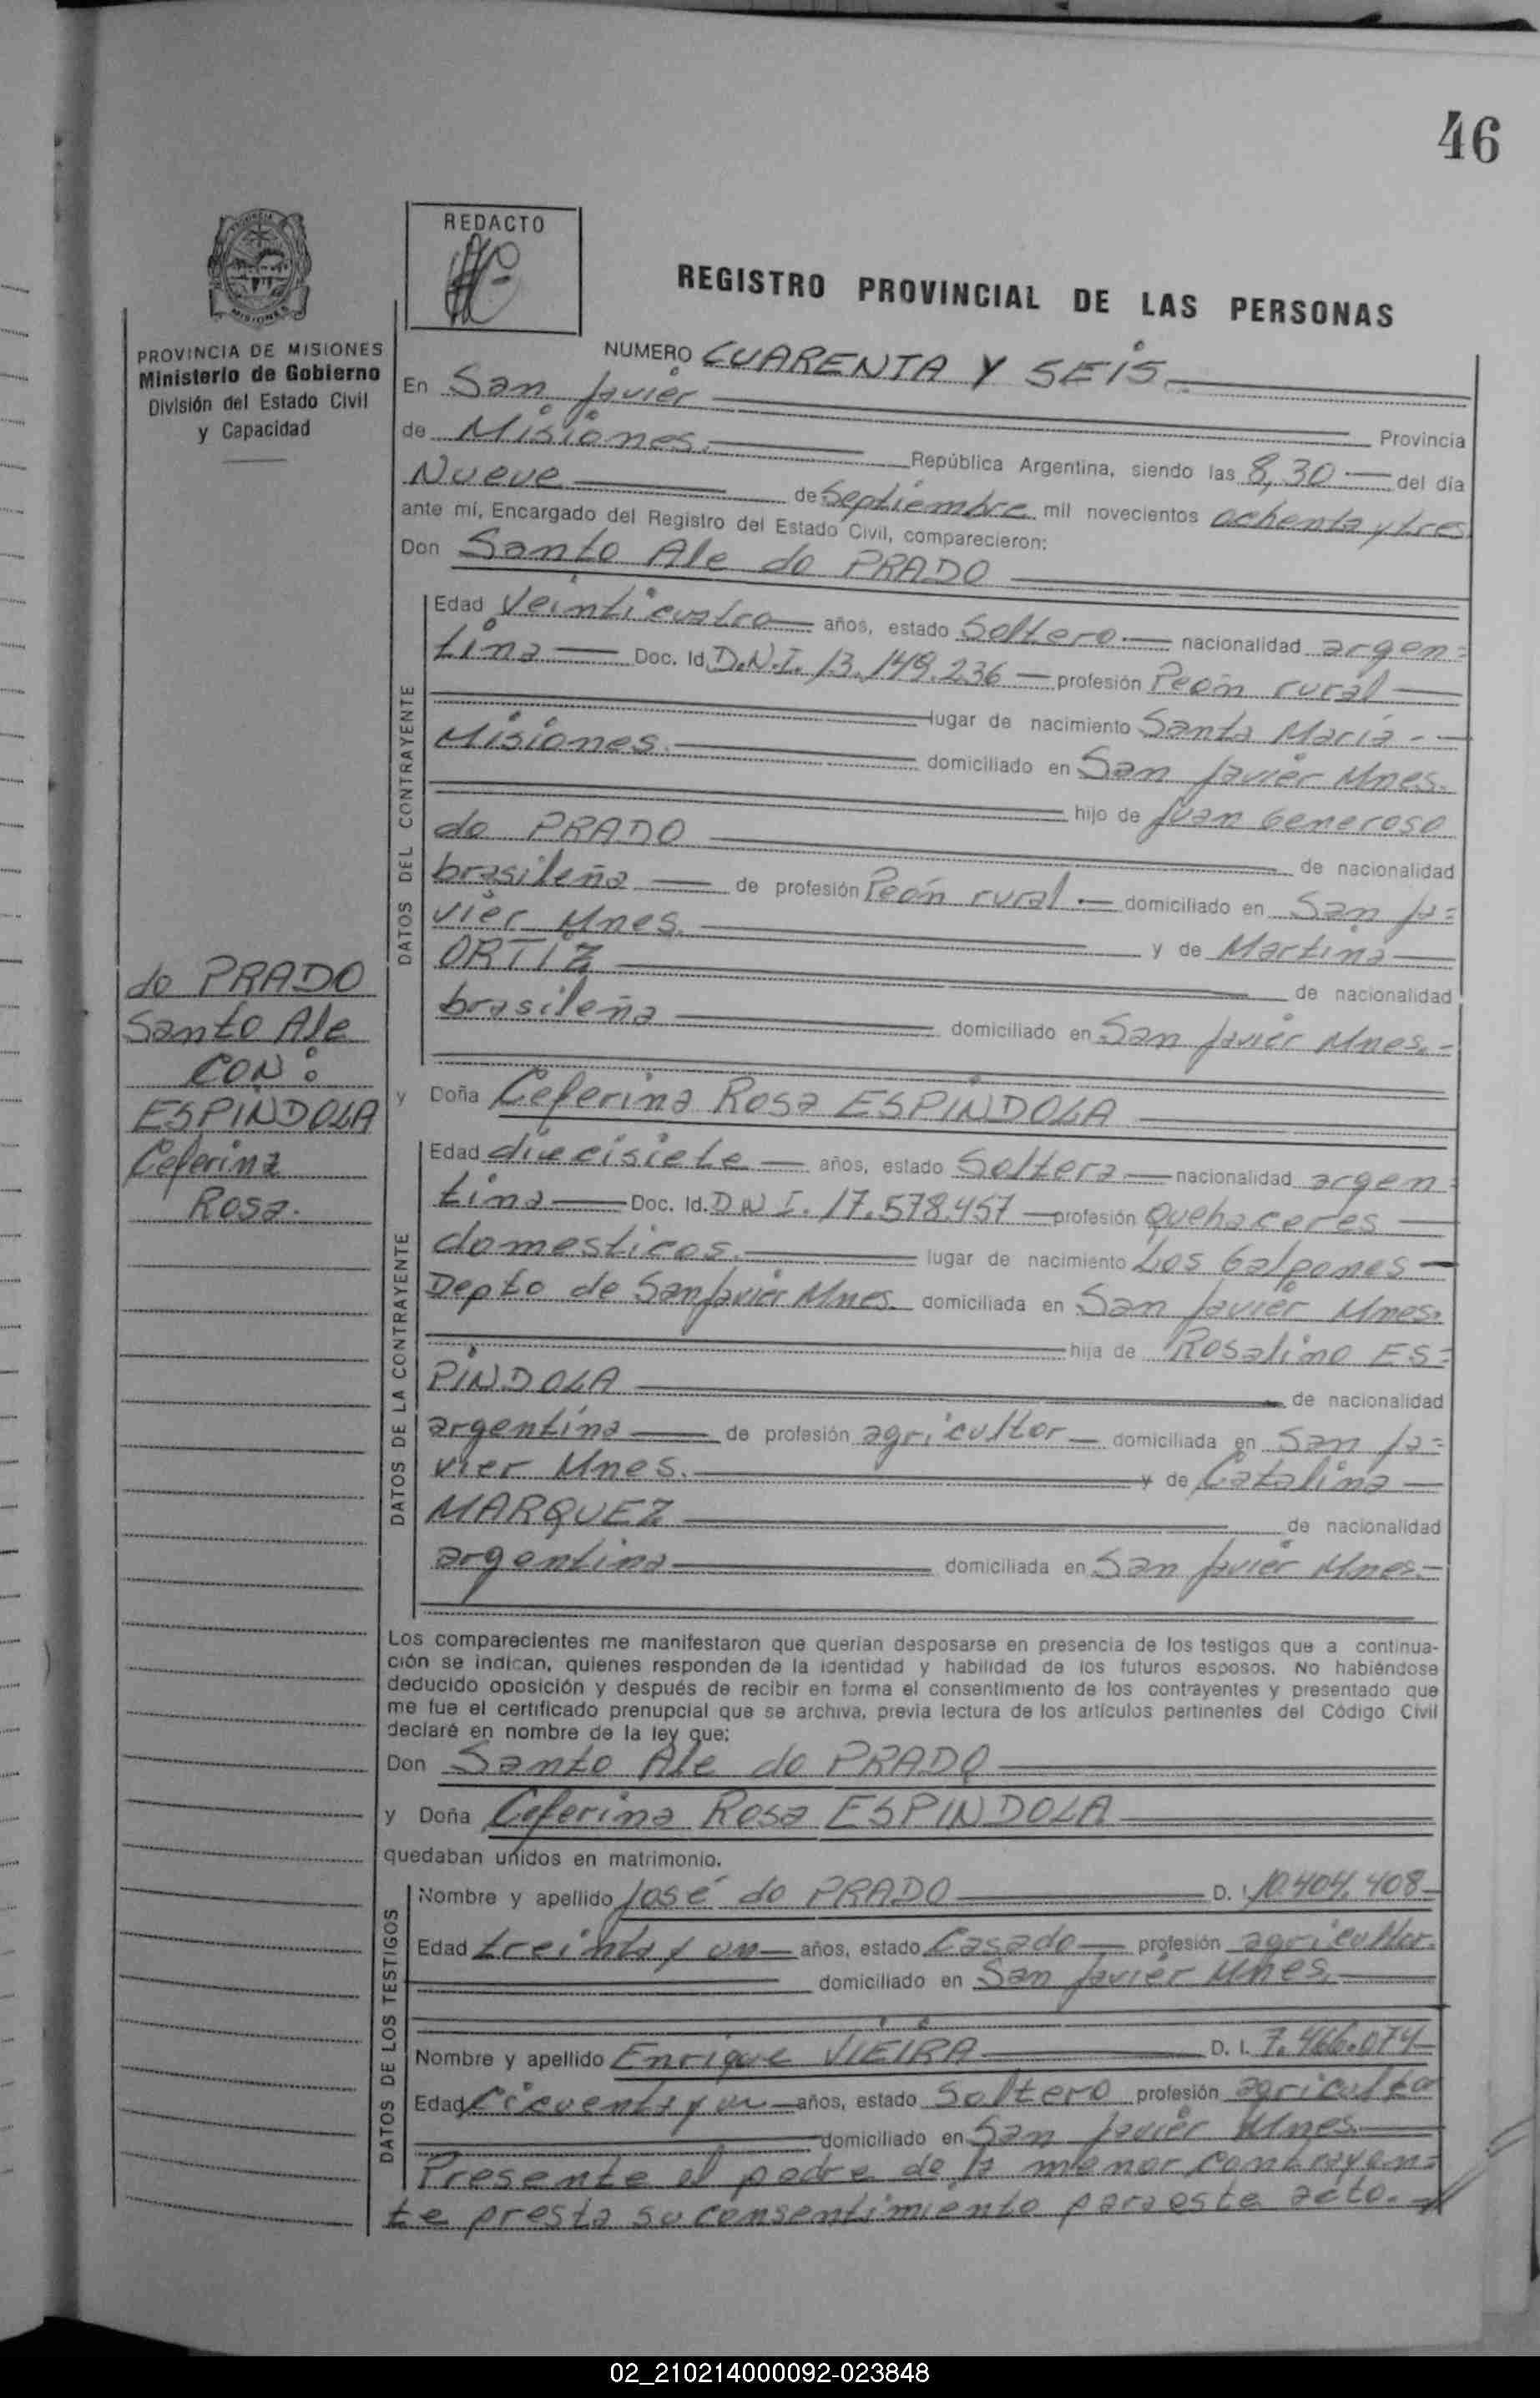 46
REDACTO
REGISTRO PROVINCIAL DE LAS PERSONAS
MISIONES
PROVINCIA DE MISIONES
Ministerio de Gobierno
División del Estado Civil
y Capacidad
NUMERO CUARENTA Y SEIS.
En San Javier
Provincia
de Misiones. República Argentina, siendo las 8,30 del día
Nueve de Septiembre mil novecientos ochenta y tres
ante mí, Encargado del Registro del Estado Civil, comparecieron:
Don Santo Ale do PRADO
DATOS DEL CONTRAYENTE
Edad Veinticuatro años, estado Soltero.— nacionalidad argen=
tina — Doc. Id. D.N.I. 13.149.236 — profesión Peón rural
lugar de nacimiento Santa María.-
Misiones. domiciliado en San Javier Mnes.
hijo de Juan Generoso
do PRADO de nacionalidad
brasileña — de profesión Peón rural.— domiciliado en San Ja=
vier Mnes. y de Martina
ORTIZ de nacionalidad
brasileña domiciliado en San Javier Mnes.-
do PRADO
Santo Ale
CON:
ESPINDOLA
Ceferina
Rosa.
y Doña Ceferina Rosa ESPINDOLA
DATOS DE LA CONTRAYENTE
Edad diecisiete — años, estado Soltera — nacionalidad argen=
tina — Doc. Id. D N I. 17.578.457 — profesión quehaceres
domesticos. lugar de nacimiento Los Galpones —
Depto de San Javier Mnes. domiciliada en San Javier Mnes.
hija de Rosalino ES=
PINDOLA de nacionalidad
argentina — de profesión agricultor — domiciliada en San Ja=
vier Mnes. y de Catalina —
MARQUEZ de nacionalidad
argentina domiciliada en San Javier Mnes.-
Los comparecientes me manifestaron que querían desposarse en presencia de los testigos que a continua-
ción se indican, quienes responden de la identidad y habilidad de los futuros esposos. No habiéndose
deducido oposición y después de recibir en forma el consentimiento de los contrayentes y presentado que
me fue el certificado prenupcial que se archiva, previa lectura de los artículos pertinentes del Código Civil
declaré en nombre de la ley que:
Don Santo Ale do PRADO
y Doña Ceferina Rosa ESPINDOLA
quedaban unidos en matrimonio.
DATOS DE LOS TESTIGOS
Nombre y apellido José do PRADO D. I. 10.404.408
Edad treinta y un — años, estado Casado — profesión agricultor.
domiciliado en San Javier Mnes.
Nombre y apellido Enrique VIEIRA D. I. 7.466.074
Edad Cicuenta y un — años, estado Soltero profesión agriculto
domiciliado en San Javier Mnes.
Presente el padre de la menor contrayen=
te presta su consentimiento para este acto.
02_210214000092-023848